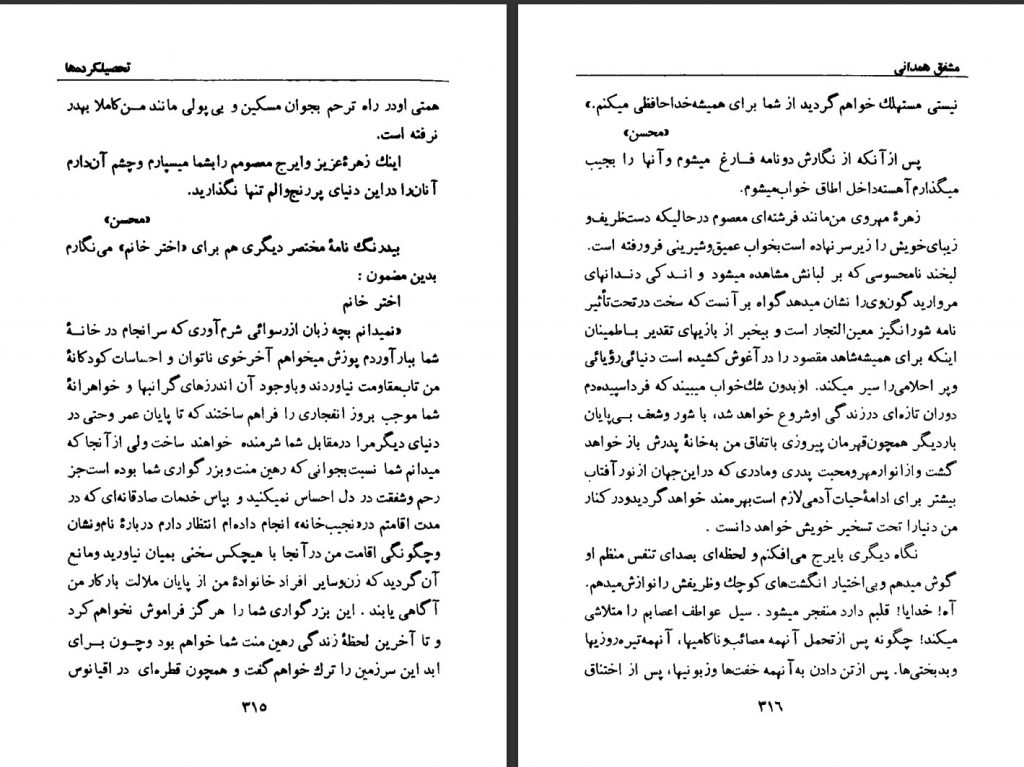 تحصیلکرده‌ها
همتی اودر راه ترحم بجوان مسکین و بی‌پولی مانند مـن‌کاملا بهدر
نرفته است.
اینك زهرۀ‌عزیز وایرج معصومم رابشما میسپارم وچشم آن‌دارم
آنان‌را دراین دنیای پررنج‌والم تنها نگذارید.
«محسن»
بیدرنگ نامۀ مختصر دیگری هم برای «اختر خانم» می‌نگارم
بدین مضمون :
اختر خانم
«نمیدانم بچه زبان ازرسوائی شرم‌آوری‌که سرانجام در خانـۀ
شما ببارآوردم پوزش میخواهم آخرخوی ناتوان و احساسات کودکانۀ
من تاب‌مقاومت نیاوردند وباوجود آن اندرزهای گرانبها و خواهرانۀ
شما موجب بروز انفجاری را فراهم ساختند که تا پایان عمر وحتی در
دنیای دیگرمرا درمقابل شما شرمنده خواهند ساخت ولی ازآنجا که
میدانم شما نسبت‌بجوانی که رهین منت وبزرگواری شما بوده است‌جز
رحم وشفقت در دل احساس نمیکنید و بپاس خدمات صادقانه‌ای که در
مدت اقامتم در«نجیب‌خانه» انجام داده‌ام انتظار دارم دربارۀ نام‌ونشان
وچگونگی اقامت من درآنجا با هیچکس سخنی بمیان نیاورید ومانع
آن‌گردیدکه زن‌وسایر افراد خانوادۀ من از پایان ملالت بارکار من
آگاهی یابند . این بزرگواری شما را هرگز فراموش نخواهم‌کرد
و تا آخرین لحظۀ زندگی رهین منت شما خواهم بود وچـون بـرای
ابد این سرزمین را ترك خواهم‌گفت و همچون قطره‌ای در اقیانوس
۳۱۵
مشفق همدانی
نیستی مستهلك خواهم گردید از شما برای همیشه‌خداحافظی میکنم.»
«محسن»
پس ازآنکه از نگارش دونامه فـارغ میشوم وآنها را بجیب
میگذارم آهسته‌داخل اطاق خواب‌میشوم.
زهرۀ مهروی من‌مانند فرشته‌ای معصوم درحالیکه دست‌ظریف‌و
زیبای‌خویش را زیرسرنهاده است‌بخواب عمیق‌وشیرینی فرورفته است.
لبخند نامحسوسی که بر لبانش مشاهده میشود و انـدکی دنـدانهای
مرواریدگون‌وی‌را نشان میدهدگواه برآنست‌که سخت درتحت‌تأثیر
نامه شورانگیز معین‌التجار است و بیخبر از بازیهای تقدیر بـاطمینان
اینکه برای همیشه‌شاهد مقصود را درآغوش‌کشیده است دنیائی‌رؤیائی
وپر احلامی‌را سیر میکند. اوبدون شك‌خواب میبیندکه فرداسپیده‌دم
دوران تازه‌ای درزندگی اوشروع خواهد شد، با شور وشعف بـی‌پایان
باردیگر همچون‌قهرمان پیروزی باتفاق من به‌خانۀ پدرش باز خواهد
گشت وازانوارمهرومحبت پدری ومادری که دراین‌جهان ازنورآفتاب
بیشتر برای ادامۀ‌حیات‌آدمی‌لازم است‌بهره‌مند خواهدگردیدودرکنار
من دنیارا تحت تسخیر خویش خواهد دانست .
نگاه دیگری بایرج می‌افکنم و لحظه‌ای بصدای تنفس منظم او
گوش میدهم وبی‌اختیار انگشت‌های‌کوچك وظریفش رانوازش‌میدهم.
آه! خدایا! قلبم دارد منفجر میشود . سیل عواطف اعصابم را متلاشی
میکند! چگونه پس‌ازتحمل آنهمه مصائب‌وناکامیها، آنهمه‌تیره‌روزیها
وبدبختی‌ها. پس ازتن دادن به‌آنهمه خفت‌ها وزبونیها، پس از اختناق
۳۱۶